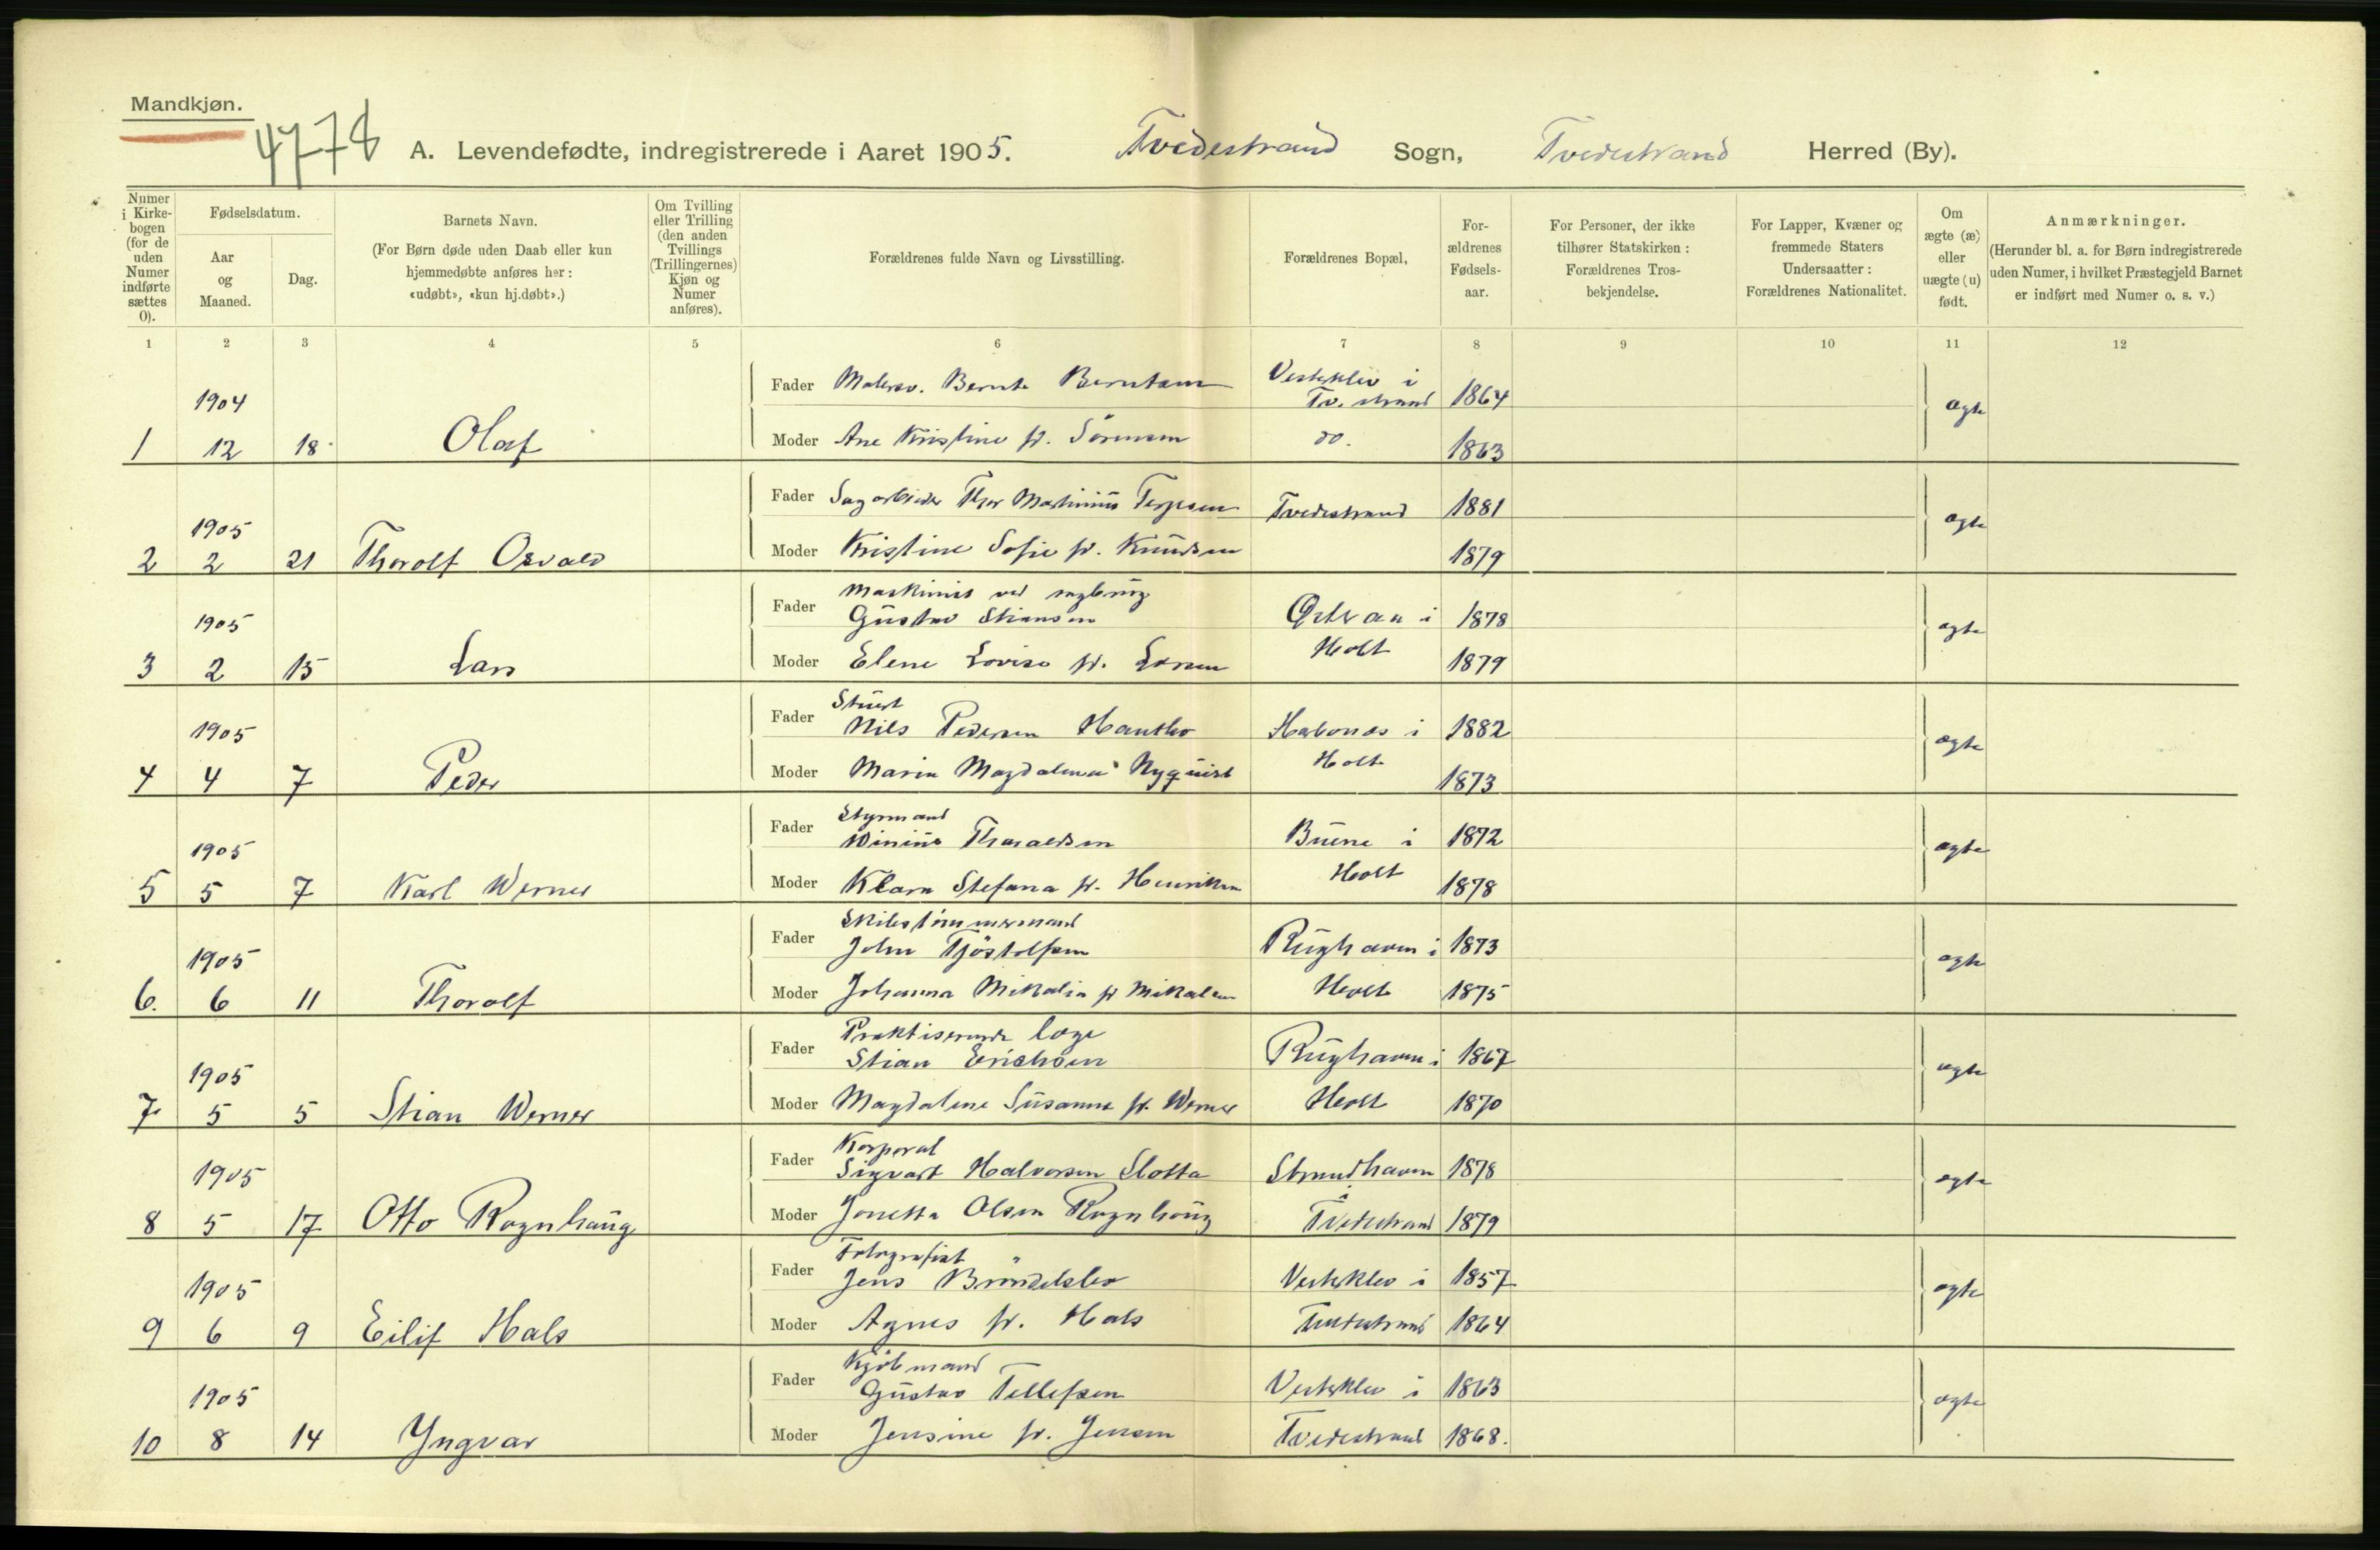 Mandkjøn.
4778
A. Levendefødte, indregistrerede i Aaret 1905. Tvedestrand Sogn, Tvedestrand Herred (By).
Numer i Kirke-bogen (for de uden Numer indførte sættes 0).
Fødselsdatum.
Aar og Maaned.
Dag.
Barnets Navn.
(For Børn døde uden Daab eller kun hjemmedøbte anføres her: «udøbt», «kun hj.døbt».)
Om Tvilling eller Trilling (den anden Tvillings (Trillingernes) Kjøn og Numer anføres).
Forældrenes fulde Navn og Livsstilling.
Forældrenes Bopæl,
For-ældrenes Fødsels-aar.
For Personer, der ikke tilhører Statskirken: Forældrenes Tros-bekjendelse.
For Lapper, Kvæner og fremmede Staters Undersaatter: Forældrenes Nationalitet.
Om ægte (æ) eller uægte (u) født.
Anmærkninger.
(Herunder bl. a. for Børn indregistrerede uden Numer, i hvilket Præstegjeld Barnet er indført med Numer o. s. v.)
1 2 3 4 5 6 7 8 9 10 11 12
1904
Fader Malersv. Bernt Berntsen Vesterklev i Tv. strand 1864 ægte
1 12 18 Olaf
Moder Ane Kristine f. Sörensen do. 1863
1905
Fader Sagarbeider Thor Martinius Terjesen Tvedestrand 1881 ægte
2 2 21 Thorolf Osvald
Moder Kristine Sofie f. Knudsen 1879
1905
Fader Maskinist ved sagbrug
Gustav Stiansen Østeraa i 1878 ægte
3 2 15 Lars
Moder Elene Lovise f. Larsen Holt 1879
1905
Fader Stuert
Nils Pedersen Hantho i 1882 ægte
4 4 7 Peder
Moder Maria Magdalena Nyquist Holt 1873
1905
Fader Styrmand
Tharaldsen Buene i 1872 ægte
5 5 7 Karl Werner
Moder Klara Stefana f. Henriksen Holt 1878
1905
Fader Skibstömmermand
John Tjöstolfsen Rughaven i 1873 ægte
6. 6 11 Thorolf
Moder Johanna Mikalia f. Mikalsen Holt 1875
1905
Fader Praktiserende læge
Stian Erichsen Rughaven i 1867 ægte
7 5 5 Stian Werner
Moder Magdalene Susanne f. Werner Holt 1870
1905
Fader Korporal
Sigvart Halvorsen Slotta Strandhaven 1878 ægte
8 5 17 Otto Rognhaug
Moder Jonetta Olsen Rognhaug i Tvedestrand 1879
1905
Fader Fotografist
Jens Bröndelsbo Vesterklev i 1857 ægte
9 6 9 Eilif Hals
Moder Agnes f. Hals Tvedestrand 1864
1905
Fader Kjöbmand
Gustav Tellefsen Vesterklev i 1863 ægte
10 8 14 Yngvar
Moder Jensine f. Jensen Tvedestrand 1868.